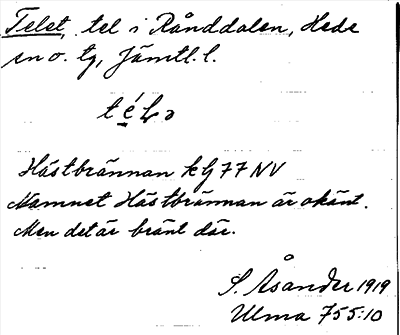 Telet, tel i Rånddalen, Hede
sn o. tg, Jämtl. l.
Hästbrännan kg 77 NV
Namnet Hästbrännan är okänt.
Men det är bränt där.
S. Åsander 1919
Ulma 755:10